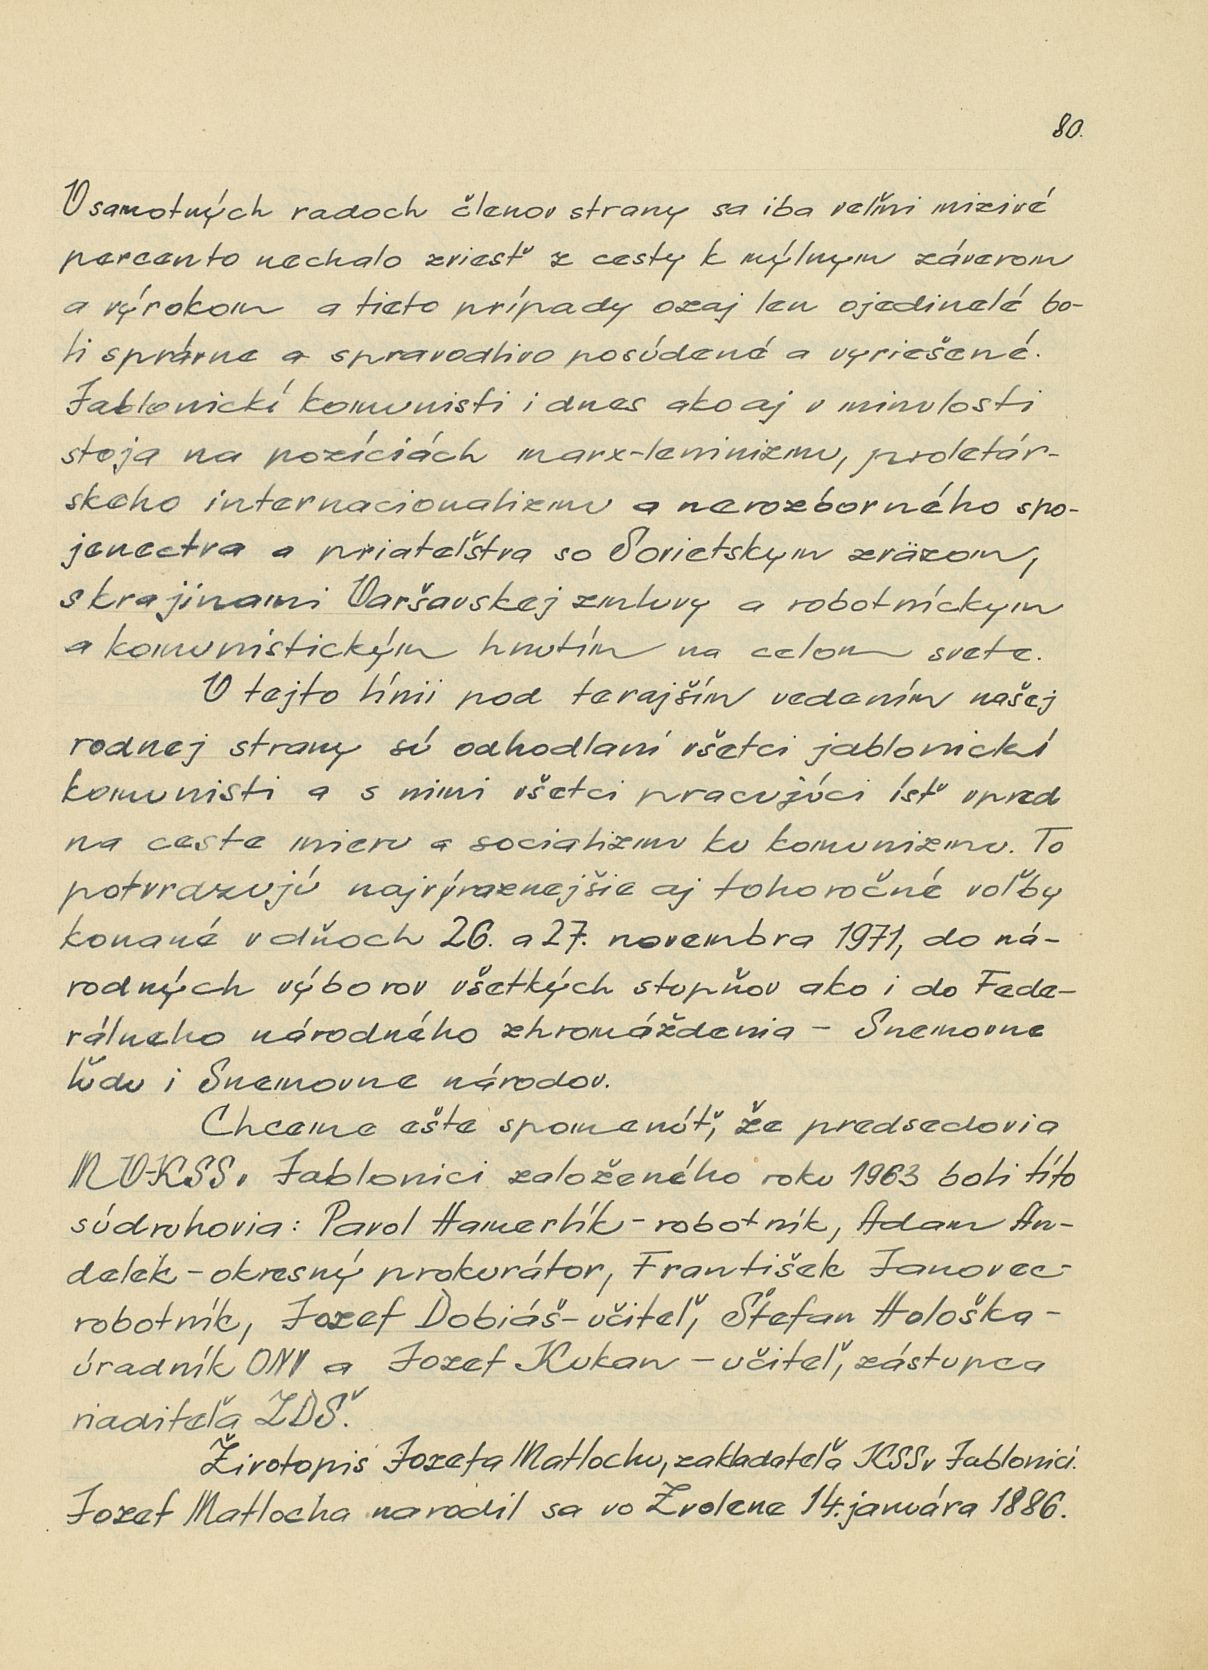 80.
V samotných radoch členov strany sa iba veľmi mizivé
percento nechalo zviesť z cesty k mýlnym záverom
a výrokom a tieto prípady ozaj len ojedinelé bo-
li správne a spravodlivo posúdené a vyriešené.
Jablonickí komunisti i dnes ako aj v minulosti
stoja na pozíciách marx-leninizmu, proletár-
skeho internacionalizmu a nerozborného spo-
jenectva a priateľstva so Sovietskym zväzom,
s krajinami Varšavskej zmluvy a robotníckym
a komunistickým hnutím na celom svete.
V tejto línii pod terajším vedením našej
rodnej strany sú odhodlaní všetci jablonickí
komunisti a s nimi všetci pracujúci ísť vpred
na ceste mieru a socializmu ku komunizmu. To
potvrdzujú najvýraznejšie aj tohoročné voľby
konané v dňoch 26. a 27. novembra 1971, do ná-
rodných výborov všetkých stupňov ako i do Fede-
rálneho národného zhromáždenia - Snemovne
ľudu i Snemovne národov.
Chceme ešte spomenúť, že predsedovia
MV-KSS v Jablonici založeného roku 1963 boli títo
súdruhovia: Pavol Hamerlík - robotník, Adam An-
delek - okresný prokurátor, František Janovec -
robotník, Jozef Dobiáš - učiteľ, Štefan Hološka -
úradník ONV a Jozef Kukan - učiteľ, zástupca
riaditeľa ZDŠ.
Životopis Jozefa Matlochu, zakladateľa KSS v Jablonici.
Jozef Matlocha narodil sa vo Zvolene 14. januára 1886.